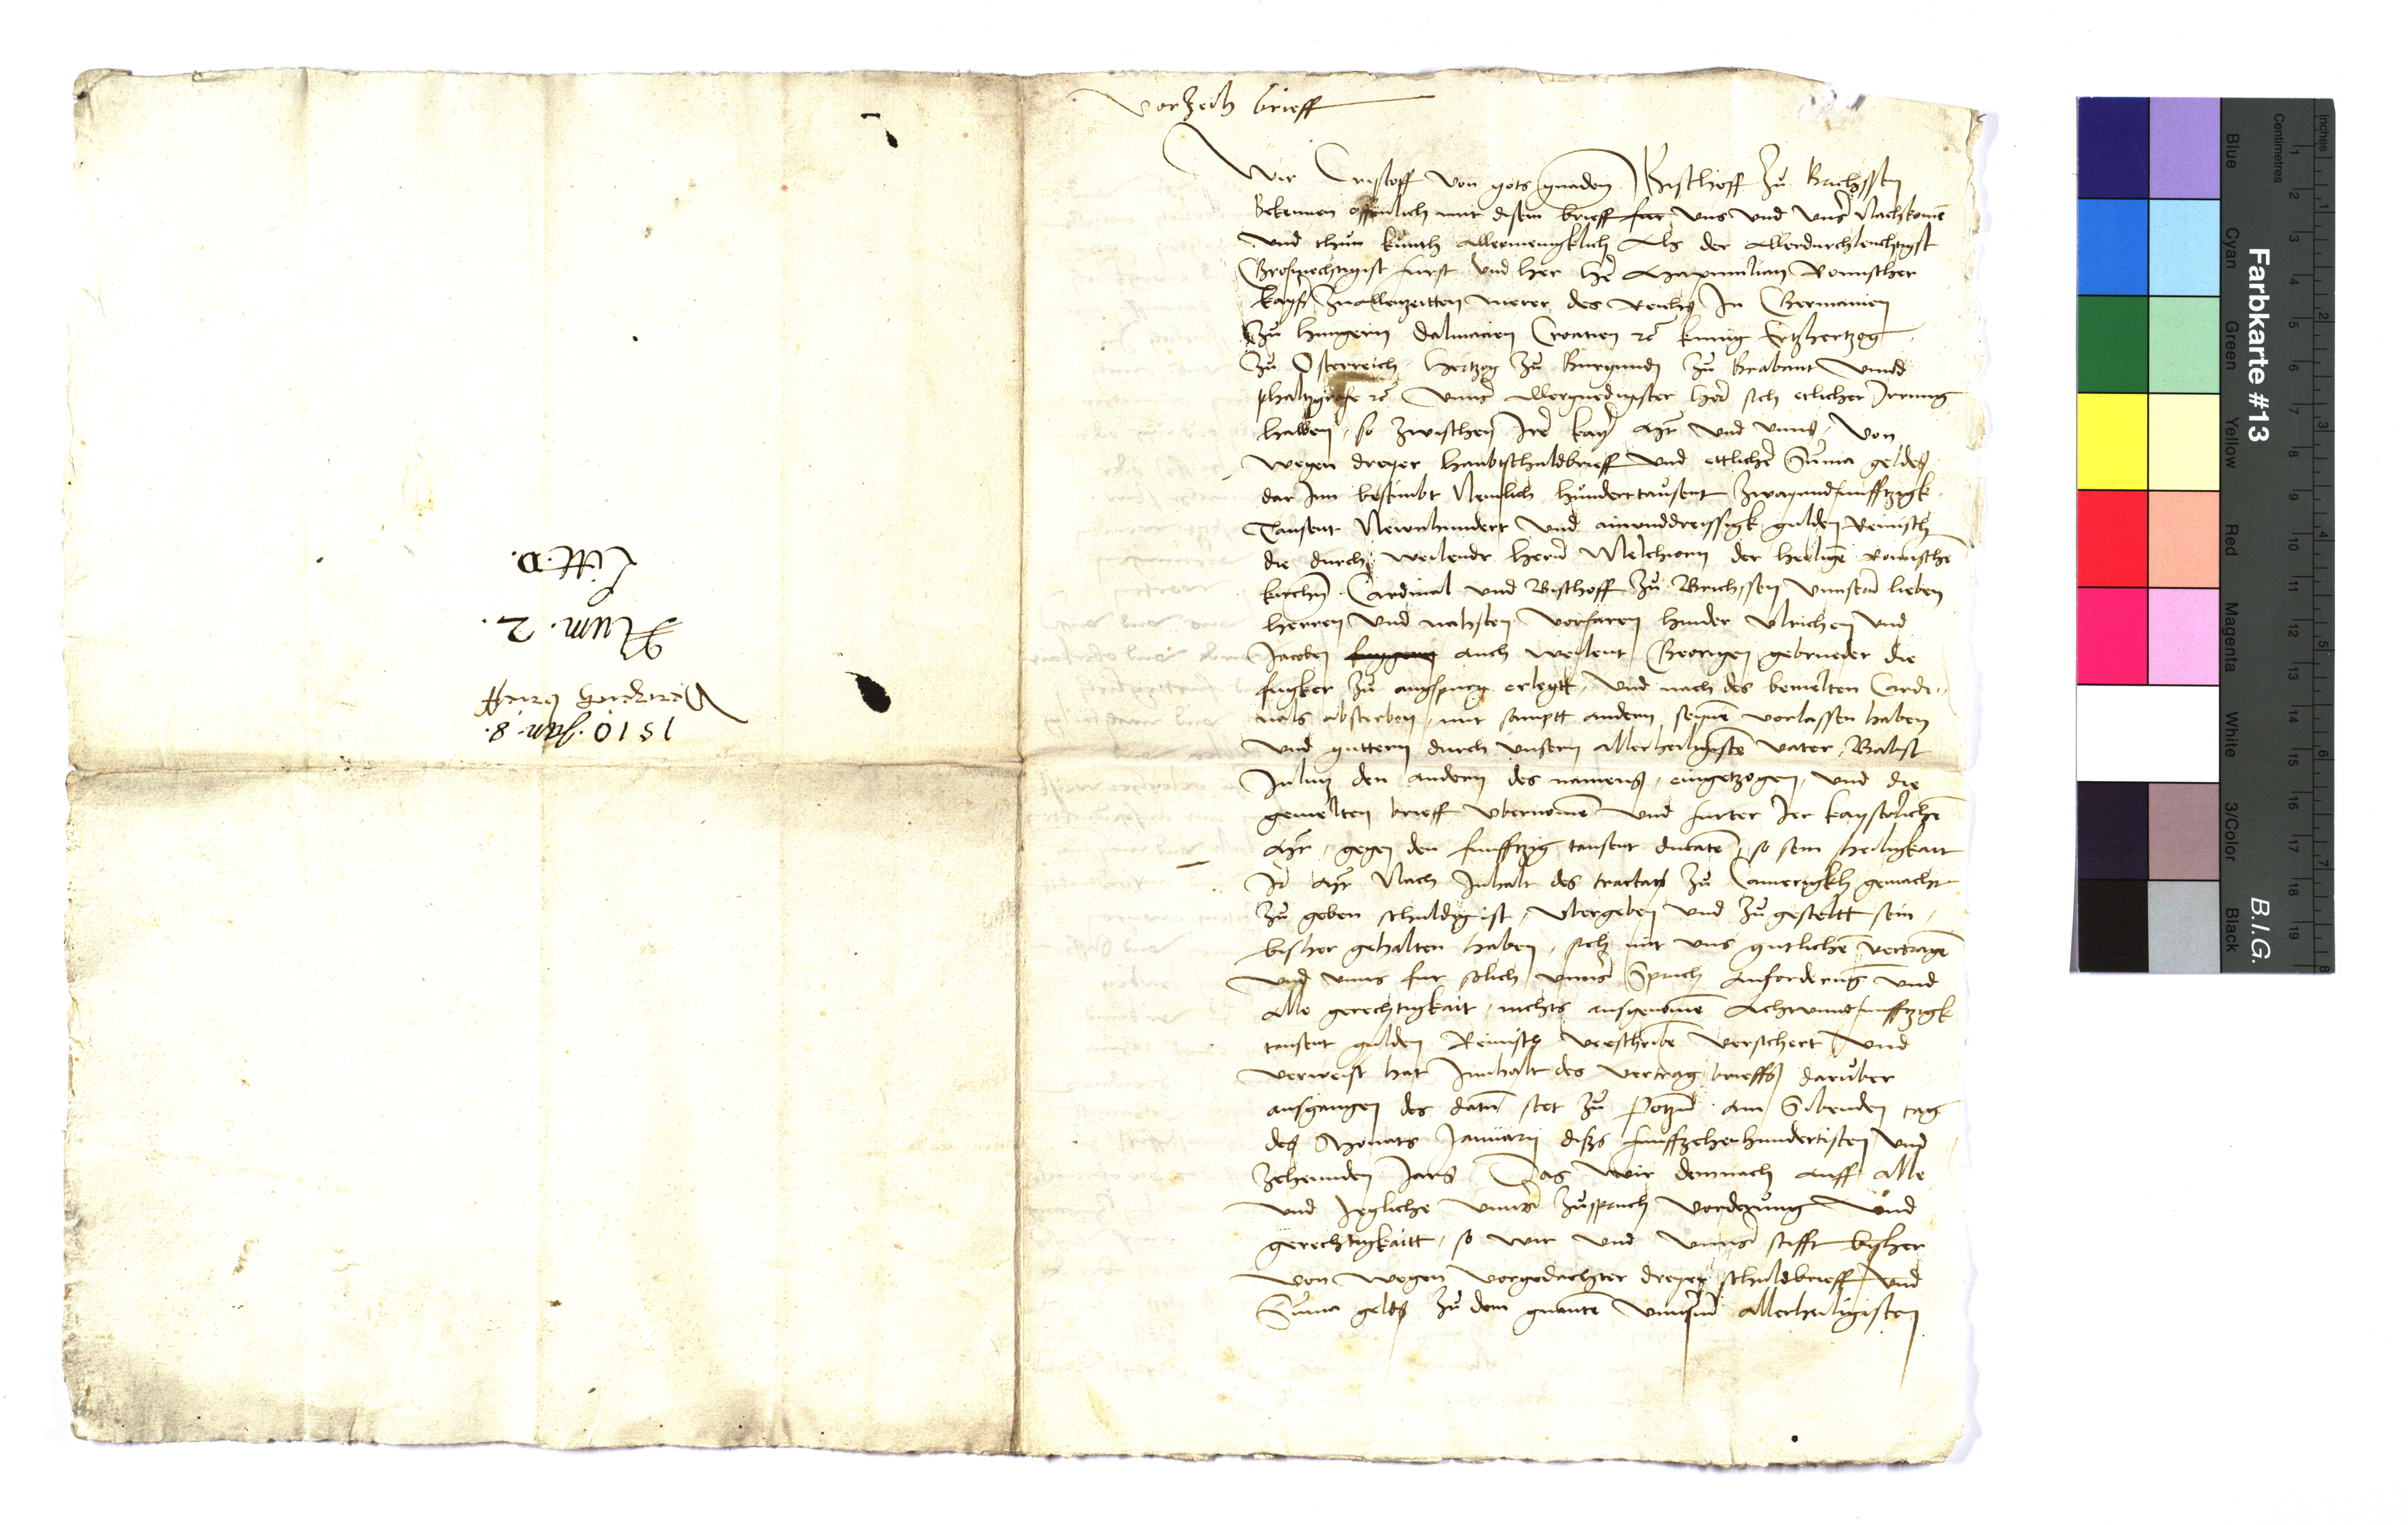 Vorzeih brieff
Wir Cristoff von gots gnaden Bischoff zu Brichssen
Bekennen offenlich mit disem brieff fur uns und unser Nachkomen
und thun kunth allermenigklich Als der Allerdurchleuchtigst
Grosmechtigist furst und her her Maximilian Romischer
kayser zuallenzeitten merer des Reichs In Germanien
zu hungern Dalmacien Croatien rc kunig Ertzhertzog
zu Osterreich Hertzog zu Burgundi zu Brabant unnd
phaltzgrafe rc unnser allergnedigster her sich etlicher Irrung
halben, so zwischen Irer kay Mt und unns, von
wegen dreyer haubtschuldbrieff und ettlicher Suma geldes
dar Inn bestimbt Nemlich hunderttausent zwayundfunfftzigk
Tausent Newnhundert und ainunddreissigk gulden Reinisch
die durch weilendt hern Melchiorn der heiligen Romischen
kirchen Cardinal und Bischoff zu Brichssen unnsern lieben
herren und nahsten vorfaren hinder Ulrichen und
Jacoben auch weilent Georigen gebrueder die
fugker zu augspurg erlegtt, und nach des bemelten Cardi-
nals absterben, mit sampt andern seynen verlassen haben
und guttern durch unsern allerheiligisten vater, Babst
Julius den andern des namens, eingetzogen, und die
gemelten brieff ubernomen und furter Irer kayserlichen
Mt, gegen den funfftzig tausent ducaten, so sein heiligkait
Ir Mt Nach Inhalt des tractats zu Camerigkh gemacht
zu geben schuldig ist, ubergeben und zu gestellt sein,
bisher gehalten haben, sich mit uns gutlichen vertragen
und unns fur solich unnser Spruch Anforderung und
alle gerechtigkait, nichts ausgenomen Achtunndfunfftzigk
tausent gulden Reinisch verschriben versichert und
verweist hat Innhalt des vertrag brieffs daruber
ausgangen des datum stet zu Potzen am Sibenden tag
des Monats Januarij diss funffzehenhundertisten und
zehennden Jars Das wir demnach auff alle
und Jegliche unnser zuspruch vorderung und
gerechtigkaitt, so wir und unnser stifft bisher
von wegen vorgedachter dreyer schuldbrieff und
Suma gelds zu dem gnanten unnserm allerheiligisten
1510. Jan. 8.
Verzeich brieff
Num. 2.
Litt. D.
Farbkarte #13
B.I.G.
Inches
Centimetres
1 2 3 4 5 6 7 8
1 2 3 4 5 6 7 8 9 10 11 12 13 14 15 16 17 18 19
Blue
Cyan
Green
Yellow
Red
Magenta
White
3/Color
Black